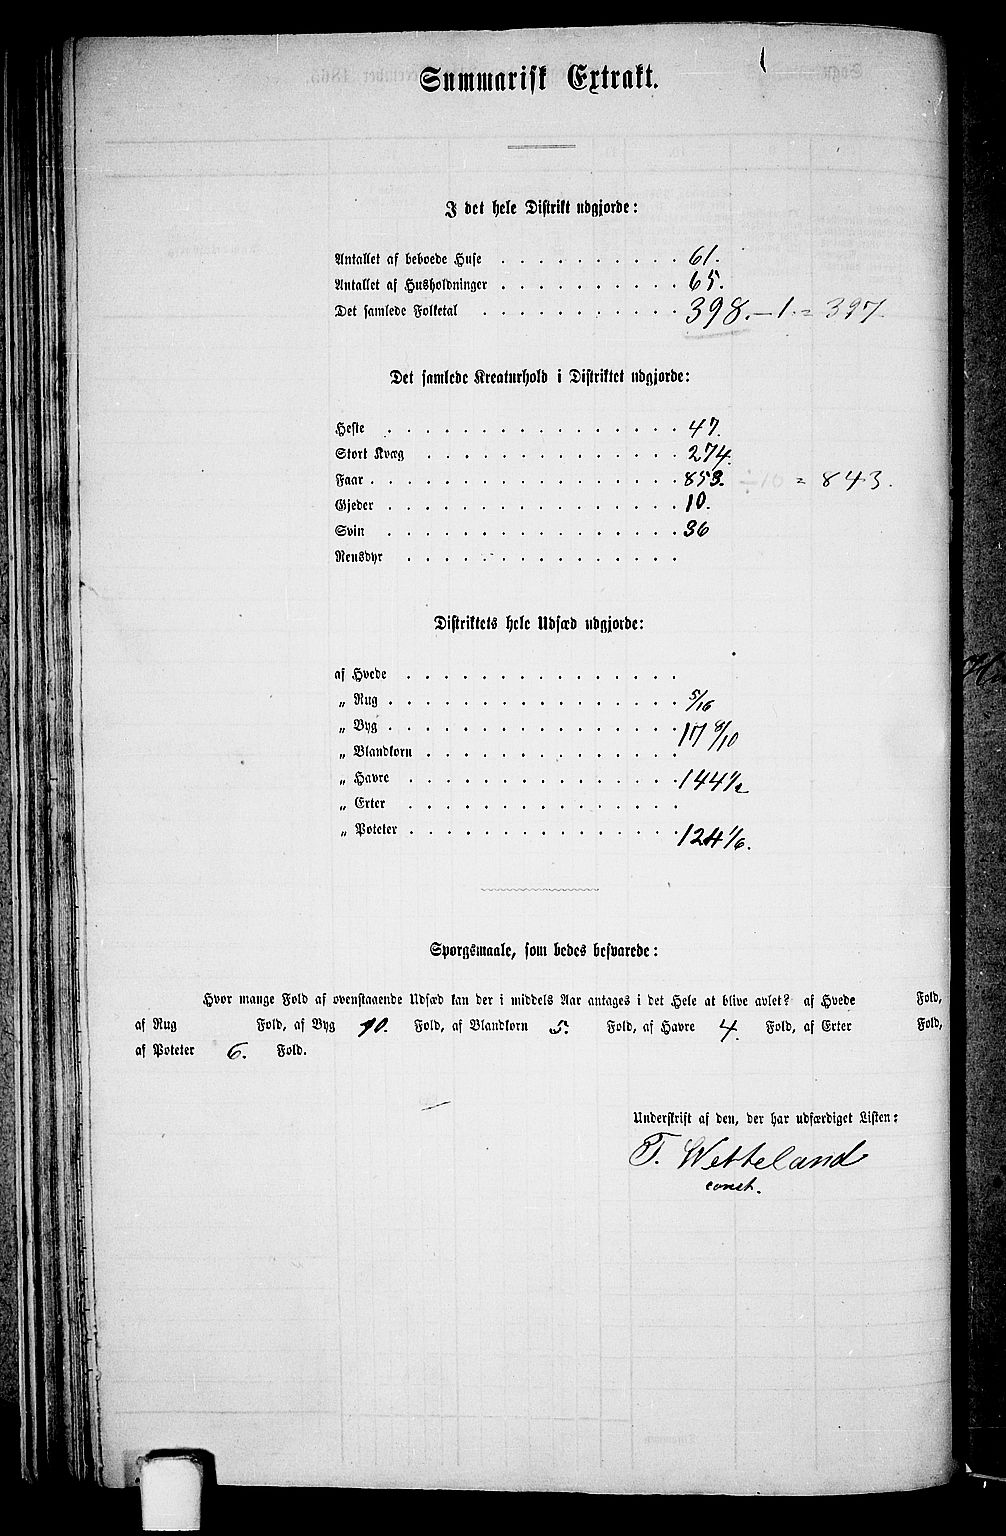 Summarisk Extrakt.
I det hele Distrikt udgjorde:
Antallet af beboede Huse . . . . . . . . . . 61.
Antallet af Husholdninger . . . . . . . . . . 65.
Det samlede Folketal . . . . . . . . . . . 398. – 1. = 397
Det samlede Kreaturhold i Distriktet udgjorde:
Heste . . . . . . . . . . . . . . . . 47.
Stort Kvæg . . . . . . . . . . . . . . 274.
Faar . . . . . . . . . . . . . . . . . 853. ÷ 10 = 843.
Gjeder . . . . . . . . . . . . . . . . 10.
Svin . . . . . . . . . . . . . . . . 36
Rensdyr . . . . . . . . . . . . . . .
Distriktets hele Udsæd udgjorde:
af Hvede . . . . . . . . . . . . . . .
„ Rug . . . . . . . . . . . . . . . . 5/16
„ Byg . . . . . . . . . . . . . . . . 17 8/10
„ Blandkorn . . . . . . . . . . . . . .
„ Havre . . . . . . . . . . . . . . . 144 1/2
„ Erter . . . . . . . . . . . . . . .
„ Poteter . . . . . . . . . . . . . . . 124 1/6.
Sporgsmaale, som bedes besvarede:
Hvor mange Fold af ovenstaaende Udsæd kan der i middels Aar antages i det Hele at blive avlet? af Hvede Fold,
af Rug Fold, af Byg 10. Fold, af Blandkorn 5. Fold, af Havre 4. Fold, af Erter Fold,
af Poteter 6. Fold.
Underskrift af den, der har udfærdiget Listen:
T. Wetteland
const.